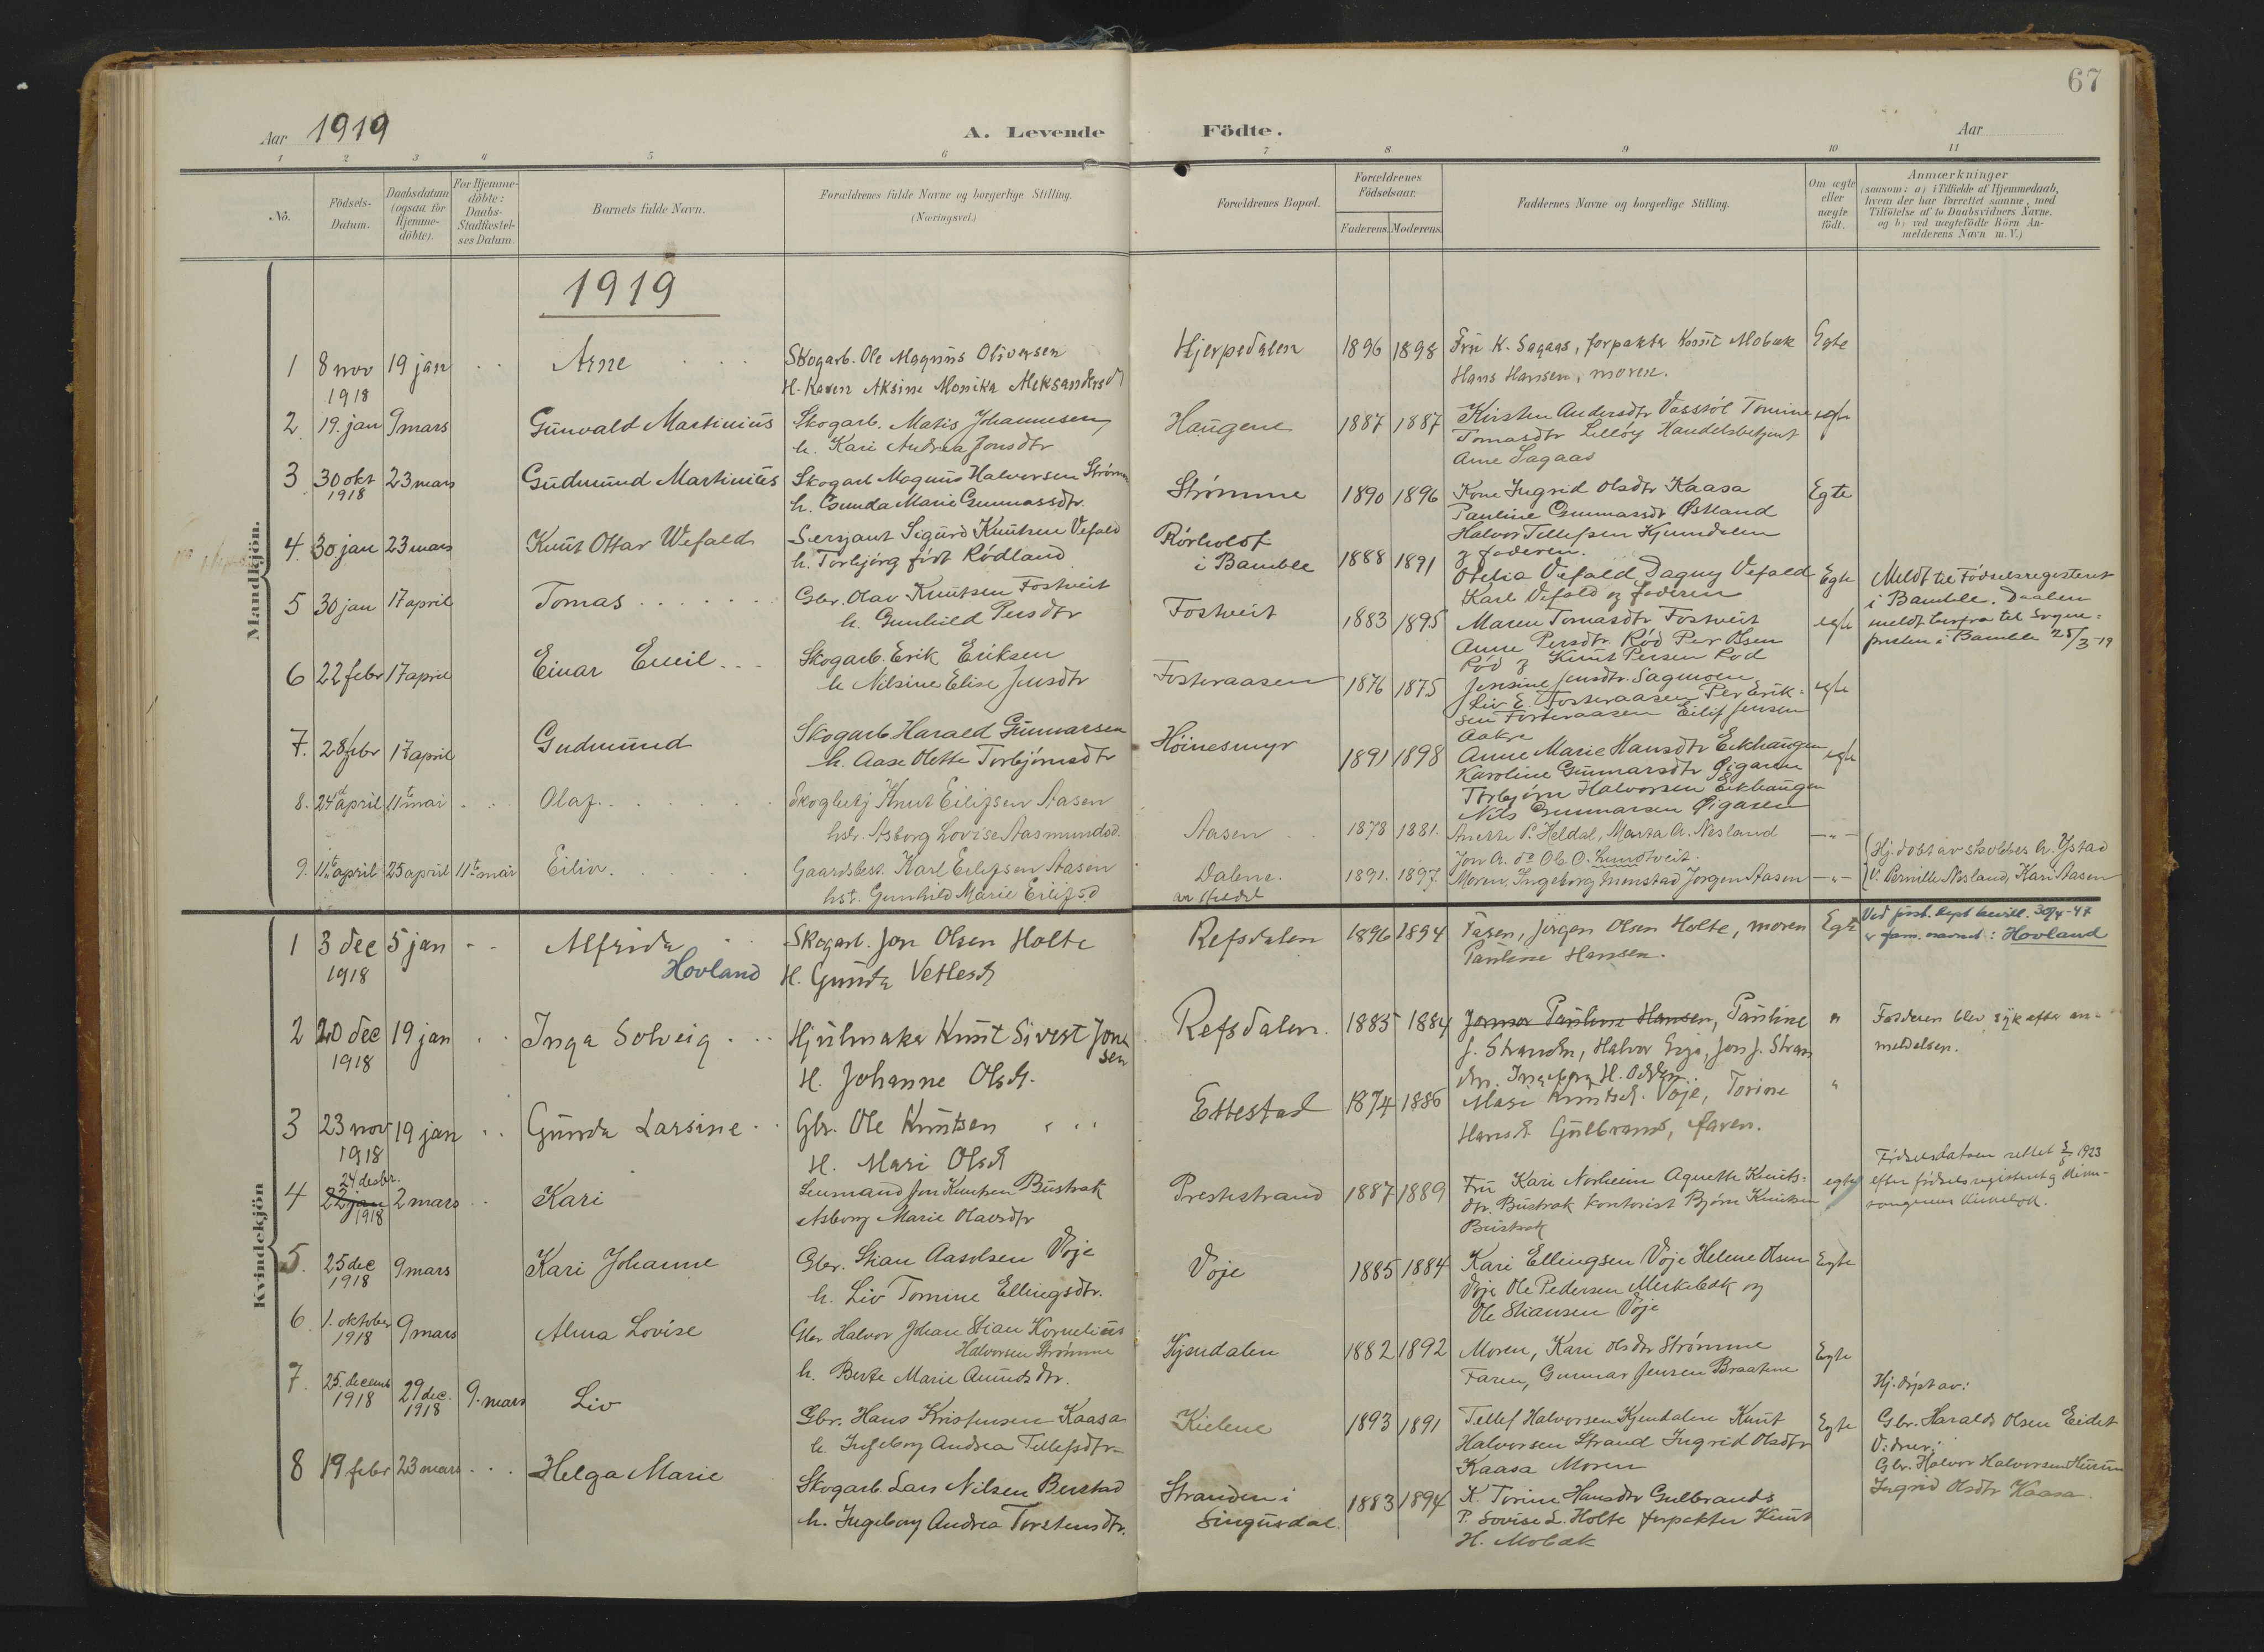 67
Aar 1919
A. Levende Födte.
Aar
1 2 3 4 5 6 7 8 9 10 11
No.
Födsels-Datum.
Daabsdatum (ogsaa for Hjemme-döbte).
For Hjemme-döbte: Daabs-Stadfæstel-ses Datum.
Barnets fulde Navn.
Forældrenes fulde Navne og borgerlige Stilling.
(Næringsvei.)
Forældrenes Bopæl.
Forældrenes Födselsaar.
Faderens. Moderens.
Faddernes Navne og borgerlige Stilling.
Om ægte eller uægte födt.
Anmærkninger
(saasom: a) i Tilfælde af Hjemmedaab,
hvem der har forrettet samme, med
Tilföielse af to Daabsvidners Navne.
og b) ved uægtefödte Börn An-
melderens Navn m. V.)
1919
Mandkjön.
1 8 nov 1918 19 jan Arne
Skogarb. Ole Magnus Oliversen
H. Karen Aksine Monika Aleksandersd
Hjerpedalen 1896 1898
Fru K. Sagaas, forpakter Knut Mobæk
Hans Hansen, moren.
Egte
2 19. jan 9 mars Gunvald Martinius
Skogarb. Matis Johannesen
h. Kari Andrea Jonsdtr
Haugene 1887 1887
Kirsten Andersdtr Vasstöl Tomine
Tomasdtr Lilløy Handelsbetjent
Arne Sagaas
egte
3 30 okt 1918 23 mars Gudmund Martinius
Skogarb Magnus Halvorsen Strømme
h. Gunda Marie Gunnarsdtr.
Strømme 1890 1896
Kone Ingrid Olsdtr Kaasa
Pauline Gunnarsdtr Østland
Halvor Tellefsen Kjendalen
og faderen.
Egte
4. 30 jan 23 mars Knut Ottar Wefald
Sersjant Sigurd Knutsen Vefald
h. Torbjörg födt Rödland
Rörholt
i Bamble 1888 1891
Otelia Vefald Dagny Vefald
Karl Vefald og faderen
Egte
Meldt til Födselsregisteret
i Bamble. Daaben
meldt herfra til Sogne-
presten i Bamble 25/3-19
5 30 jan 17 april Tomas
Gbr. Olav Knutsen Fostveit
h. Gunhild Persdtr
Fostveit 1883 1895
Maren Tomasdtr Fostveit
Anne Persdtr Rød Per Olsen
Rød og Knut Persen Rød
egte
6 22 febr 17 april Einar Emil
Skogarb. Erik Eriksen
h Nilsine Elise Jensdtr
Fosteraasen 1876 1875
Jensine Jensdtr. Sagmoen
Liv E. Fosteraasen Per Erik-
sen Fosteraasen Eilif Jensen
Aakre
egte
7. 28 febr 17 april Gudmund
Skogarb. Harald Gunnarsen
h. Aase Olette Torbjörnsdtr
Höinesmyr 1891 1898
Anne Marie Hansdtr Eekhaugen
Karoline Gunnarsdtr Øigaren
Torbjörn Halvorsen Eekhaugen
Nils Gunnarsen Øigaren
egte
8. 24d april 11te mai Olaf
Skogbetj Knut Eilifsen Aasen
hstr. Asborg Lovise Aasmundsd.
Aasen 1878 1881.
Anette P. Heldal, Marta A. Nesland
Jon A. do Ole O. Lundtveit.
— " —
9. 11te april 25 april 11te mai Eiliv
Gaardsbest. Karl Eilifsen Aasen
hst. Gunhild Marie Eilifsd
Dalene. 1891. 1897.
Moren, Ingeborg Menstad Jorgen Aasen
— " —
(Hj. døbt av skolebes. A. Ystad
V. Pernille Nesland, Kari Aasen
Kvindekjön
1 3 dec 1918 5 jan Alfrida
Hovland
Skogarb. Jon Olsen Holte
H. Gunda Vetlesd
Refsdalen 1896 1894
Faren, Jörgen Olsen Holte, moren
Pauline Hansen.
Egte
Ved just. dept bevill. 30/4-47
er fam. navnet: Hovland
2 20 dec 1918 19 jan Inga Solveig
Hjulmaker Knut Sivert Jonsen
H. Johanne Olsd.
Refsdalen. 1885 1884
Jomar Pauline Hansen, Pauline
J. Stranden, Halvor Eega, Jon J. Stran
den. Ingeborg H.
"
Forderen blev syk efter an-
meldelsen.
3 23 nov 1918 19 jan Gunda Larsine
Gbr. Ole Knutsen
H. Mari Olsd
Ettestad 1874 1886
Mari Knutsd. Vöje, Torine
Hansd. Gulbrands, faren.
"
4 24 desbr. 22 jan 1918 2 mars Kari
Lensmand Jon Knutsen Bustrak
Asborg Marie Olavsdtr
Prestestrand 1887 1889
Fru Kari Norheim Agnethe Knuts-
dtr. Bustrak kontorist Björn Knutsen
Bustrak
egte
Födselsdatoen rettet 1923
efter födselsregisteret og Kirke-
5. 25 dec 1918 9 mars Kari Johanne
Gbr. Stian Aasolsen Vöje
h. Liv Tomine Ellingsdtr.
Vöje 1885 1884
Kari Ellingsen Vöje Helene Olsen
Vöje Ole Pedersen Merkebæk og
Ole Stiansen Vöje
Egte
6. 1. oktober 1918 9 mars Alma Lovise
Gbr. Halvor Johan Stian Kornelius
Halvorsen Strømme
h. Berte Marie Amundsdtr.
Kjendalen 1882 1892
Moren, Kari Olsdtr Strømme
Faren, Gunnar Jensen Braatene
Egte
7. 25. decemb 1918 29 dec. 1918 9. mars Liv
Gbr. Hans Kristensen Kaasa
h. Ingeborg Andrea Tellefsdtr
Kielene 1893 1891
Tellef Halvorsen Kjendalen Knut
Halvorsen Strand Ingrid Olsdtr
Kaasa Moren
Egte
Hj. döpt av:
Gbr. Harald Olsen Eidet
Vidner:
Gbr. Halvor Halvorsen
Ingrid Olsdtr Kaasa.
8 19 febr 23 mars Helga Marie
Skogarb. Lars Nilsen Berstad
h. Ingeborg Andrea Torstensdtr.
Stranden i
Singusdal. 1883 1894
K. Torine Hansdtr Gulbrands
P. Lovise L. Holte forpakter Knut
H. Mobæk